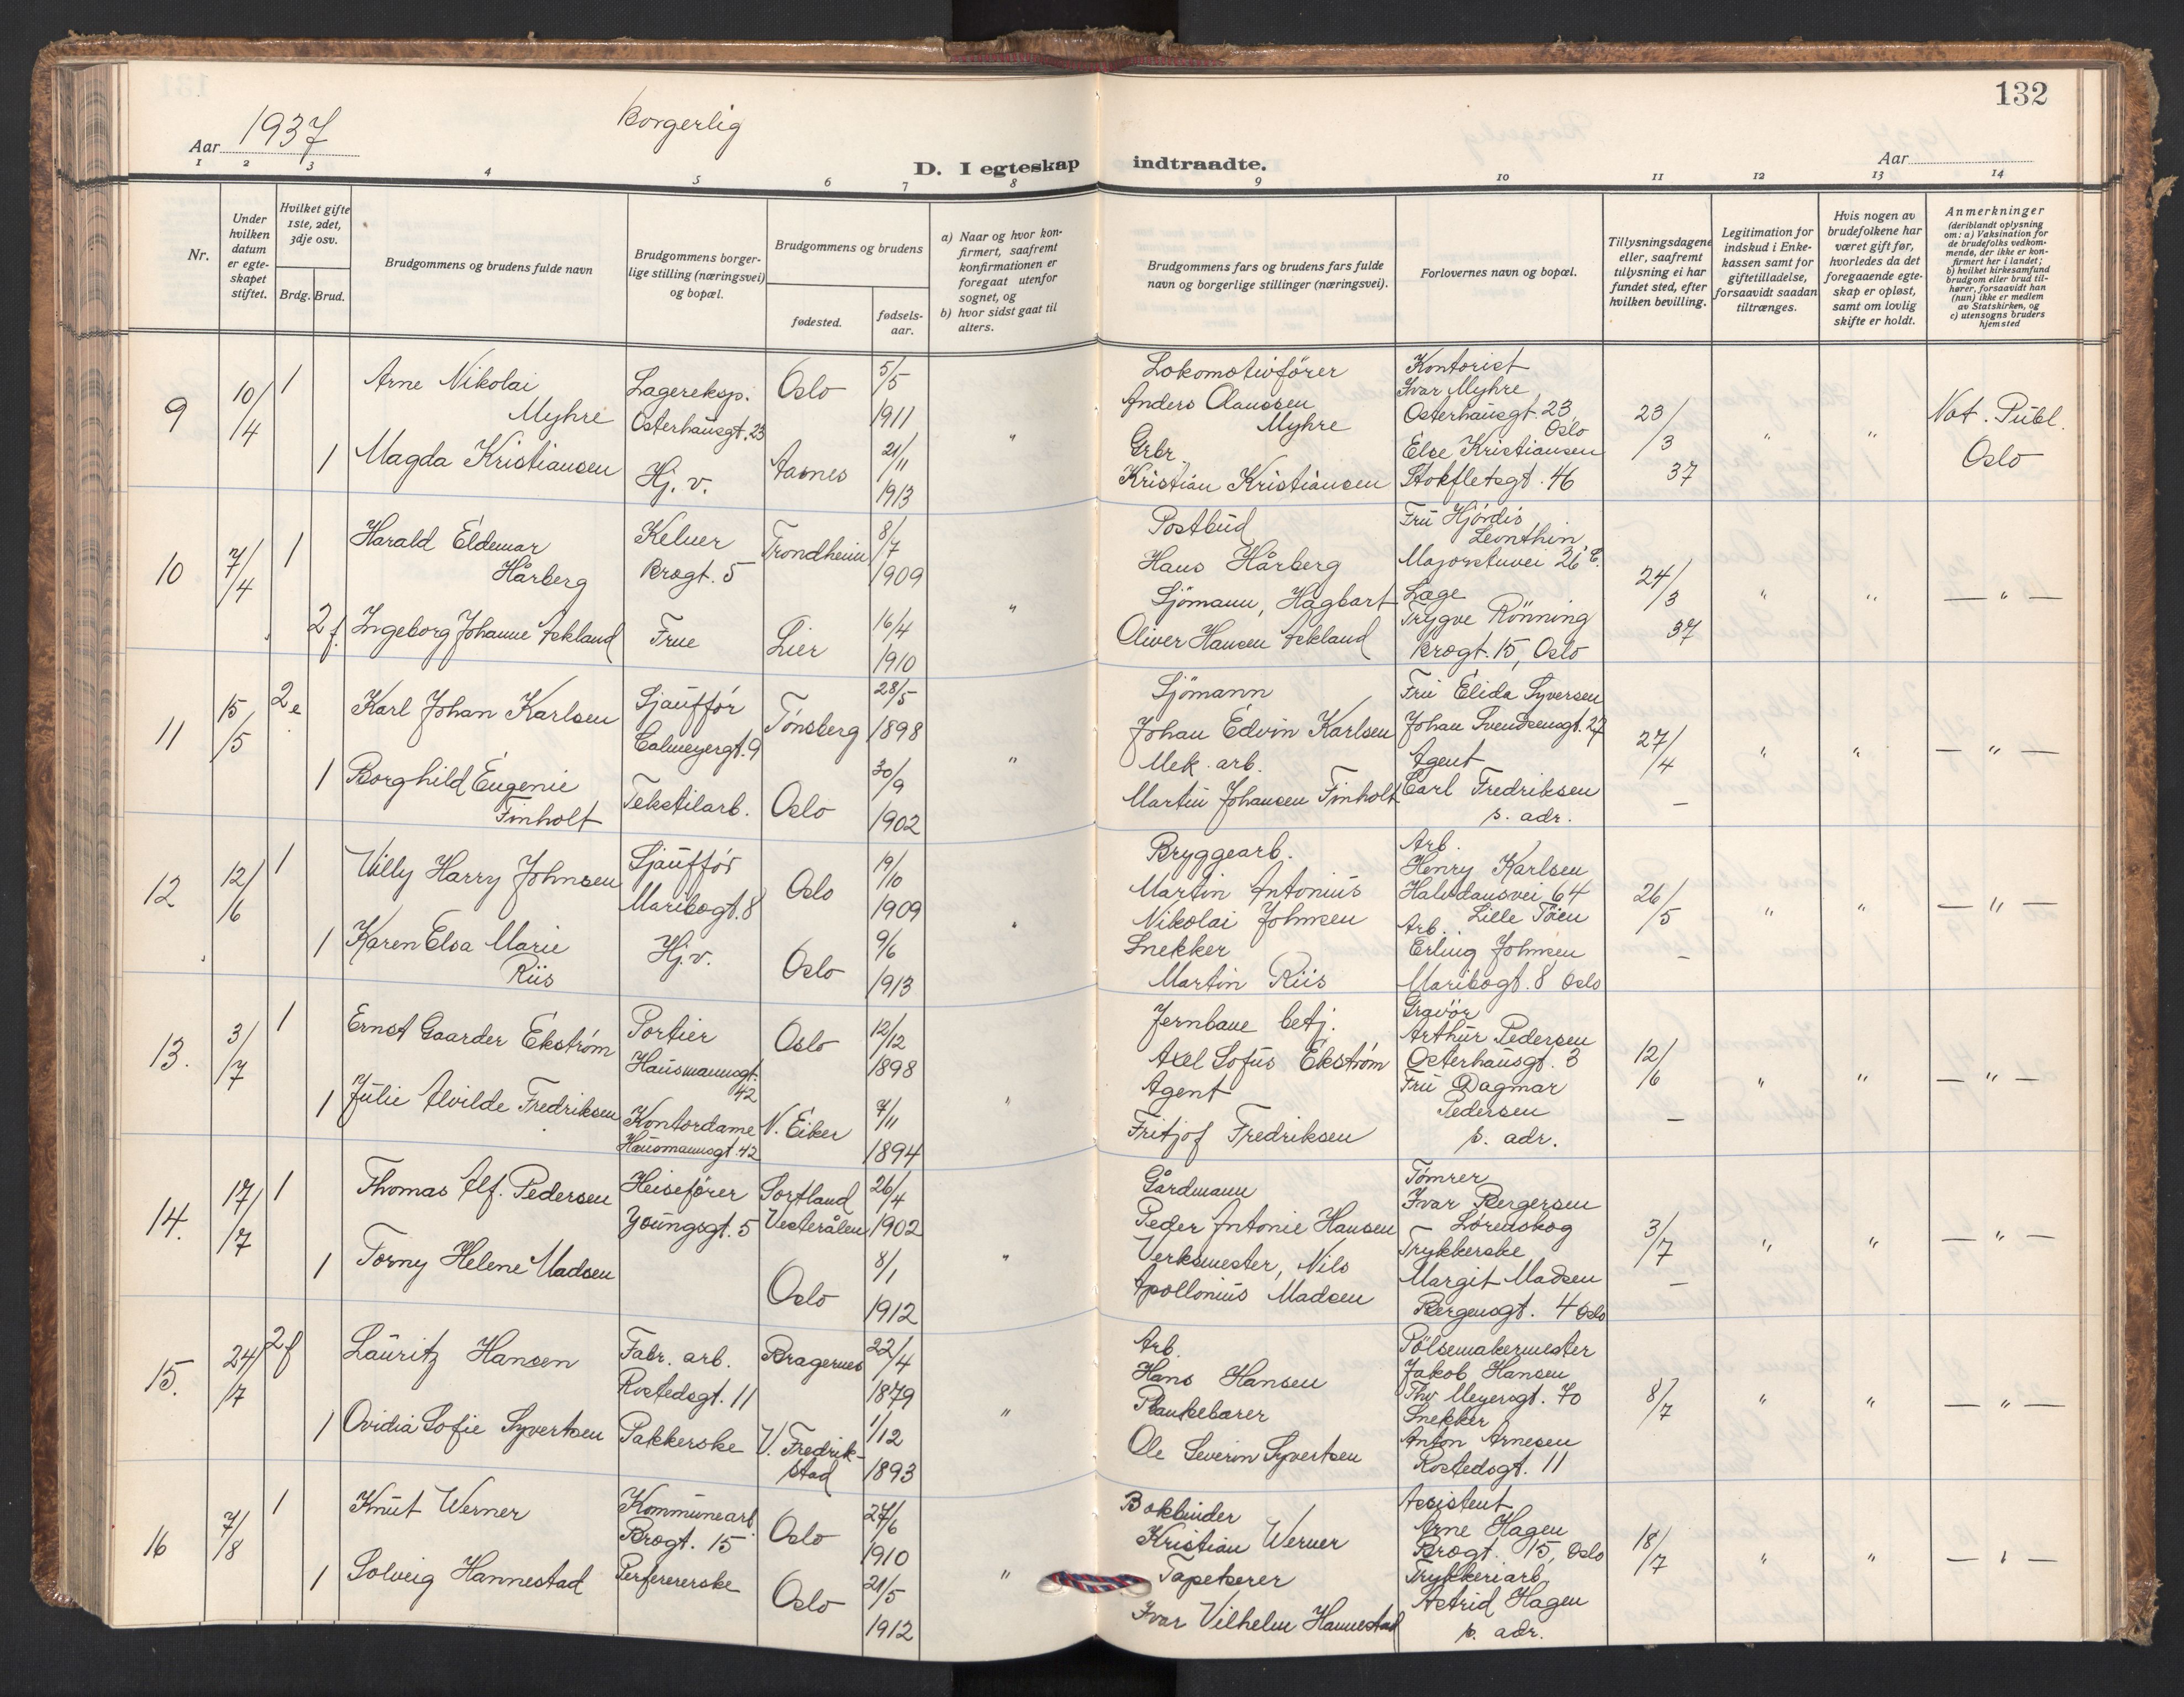 132
1937
Borgerlig
Aar
Aar
D. I egteskap indtraadte.
1 2 3 4 5 6 7 8 9 10 11 12 13 14
Nr.
Under hvilken datum er egte-skapet stiftet.
Hvilket gifte 1ste, 2det, 3dje osv.
Brdg. Brud.
Brudgommens og brudens fulde navn
Brudgommens borger-lige stilling (næringsvei) og bopæl.
Brudgommens og brudens
fødested.
fødsels-aar.
a) Naar og hvor kon-firmert, saafremt konfirmationen er foregaat utenfor sognet, og
b) hvor sidst gaat til alters.
Brudgommens fars og brudens fars fulde navn og borgerlige stillinger (næringsvei).
Forlovernes navn og bopæl.
Tillysningsdagene eller, saafremt tillysning ei har fundet sted, efter hvilken bevilling.
Legitimation for indskud i Enke-kassen samt for giftetilladelse, forsaavidt saadan tiltrænges.
Hvis nogen av brudefolkene har været gift før, hvorledes da det foregaaende egte-skap er opløst, samt om lovlig skifte er holdt.
Anmerkninger (deriblandt oplysning om: a) Vaksination for de brudefolks vedkom-mende, der ikke er kon-firmert her i landet; b) hvilket kirkesamfund brudgom eller brud til-hører, forsaavidt han (hun) ikke er medlem av Statskirken, og c) utensogns bruders hjemsted
9
10/4
1
Arne Nikolai
Myhre
Lagereksp.
Osterhausgt. 23
Oslo
5/5
1911
1
Magda Kristiansen
Hj. v.
Aasnes
21/11
1913
"
Lokomotivfører
Anders Olaussen
Myhre
Grbr.
Kristian Kristiansen
Kontorist
Ivar Myhre
Osterhausgt. 23
Oslo
Else Kristiansen
Stokfletsgt. 46
23/3
37
" "
Not. Publ.
Oslo
10
7/4
1
Harald Eldemar
Hårberg
Kelner
Brogt. 5
Trondheim
8/7
1909
2 f.
Ingeborg Johanne Askland
Frue
Lier
16/4
1910
"
Postbud
Hans Hårberg
Sjömann, Hagbart
Oliver Hansen Askland
Fru Hjördis
Leonthin
Majorstuvei 26 C.
Læge
Trygve Rönning
Brogt. 15, Oslo
24/3
37
" "
— " —
11
15/5
2 e.
Karl Johan Karlsen
Sjauffør
Calmeyergt. 9
Tønsberg
28/5
1898
1
Borghild Eugenie
Finholt
Tekstilarb.
Oslo
30/9
1902
"
Sjömann
Johan Edvin Karlsen
Mek. arb.
Martin Johansen Finholt
Fru Elida Syversen
Johan Svendsensgt. 27
Agent
Carl Fredriksen
s. adr.
27/4
—
" "
— " —
12
12/6
1
Willy Harry Johnsen
Sjauffør
Maribogt. 8
Oslo
19/10
1909
1
Karen Elsa Marie
Riis
Hj. v.
Oslo
9/6
1913
"
Bryggearb.
Martin Antonius
Nikolai Johnsen
Snekker
Martin Riis
Arb.
Henry Karlsen
Halvdansvei 64
Lille Töien
Arb.
Erling Johnsen
Maribogt. 8 Oslo
26/5
—
" "
— " —
13.
3/7
1
Ernst Gaarder Ekstrøm
Portier
Hausmannsgt. 42
Oslo
12/12
1898
1
Julie Alvilde Fredriksen
Kontordame
Hausmannsgt. 42
N. Eiker
7/11
1894
"
Jernbane betj.
Axel Sofus Ekstrøm
Agent
Fritjof Fredriksen
Gravör
Arthur Pedersen
Osterhausgt. 3
Fru Dagmar
Pedersen
s. adr.
12/6
—
" "
— " —
14.
17/7
1
Thomas Alf. Pedersen
Heisefører
Youngsgt. 5
Sortland
Vesterålen
26/4
1902
1
Torny Helene Madsen
Oslo
8/1
1912
"
Gårdmann
Peder Antonie Hansen
Verksmester, Nils
Apollonius Madsen
Tømrer
Ivar Bergersen
— Lørenskog
Trykkerske
Margit Madsen
Bergensgt. 4 Oslo
3/7
—
" "
— " —
15.
24/7
2 f
Lauritz Hansen
Fabr. arb.
Rostedsgt. 11
Bragernes
22/4
1879
1
Ovidia Sofie Syvertsen
Pakkerske
V. Fredrik-
stad
1/12
1893
"
Arb.
Hans Hansen
Plankebærer
Ole Severin Syvertsen
Pölsemakermester
Jakob Hansen
Thv. Meyersgt. 70
Snekker
Anton Arnesen
Rostedsgt. 11
8/7
" "
— " —
16
7/8
1
Knut Werner
Kommunearb.
Brogt. 15
Oslo
27/6
1910
1
Solveig Hannestad
Perforererske
Oslo
21/5
1912
"
Bokbinder
Kristian Werner
Tapetserer
Ivar Vilhelm Hannestad
Assistent
Arne Hagen
Brogt. 15, Oslo
Trykkeriarb.
Astrid Hagen
s. adr.
18/7
" "
— " —